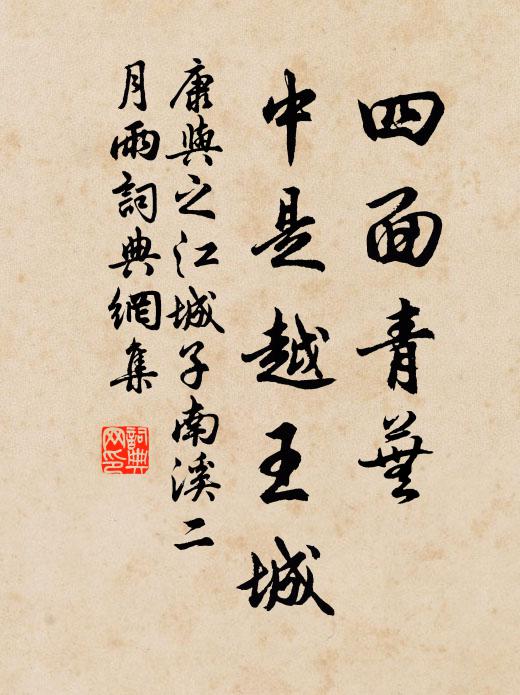 四面青蕪
中是越王城
康與之江城子南溪二
月雨詞典網集
詞典
网印